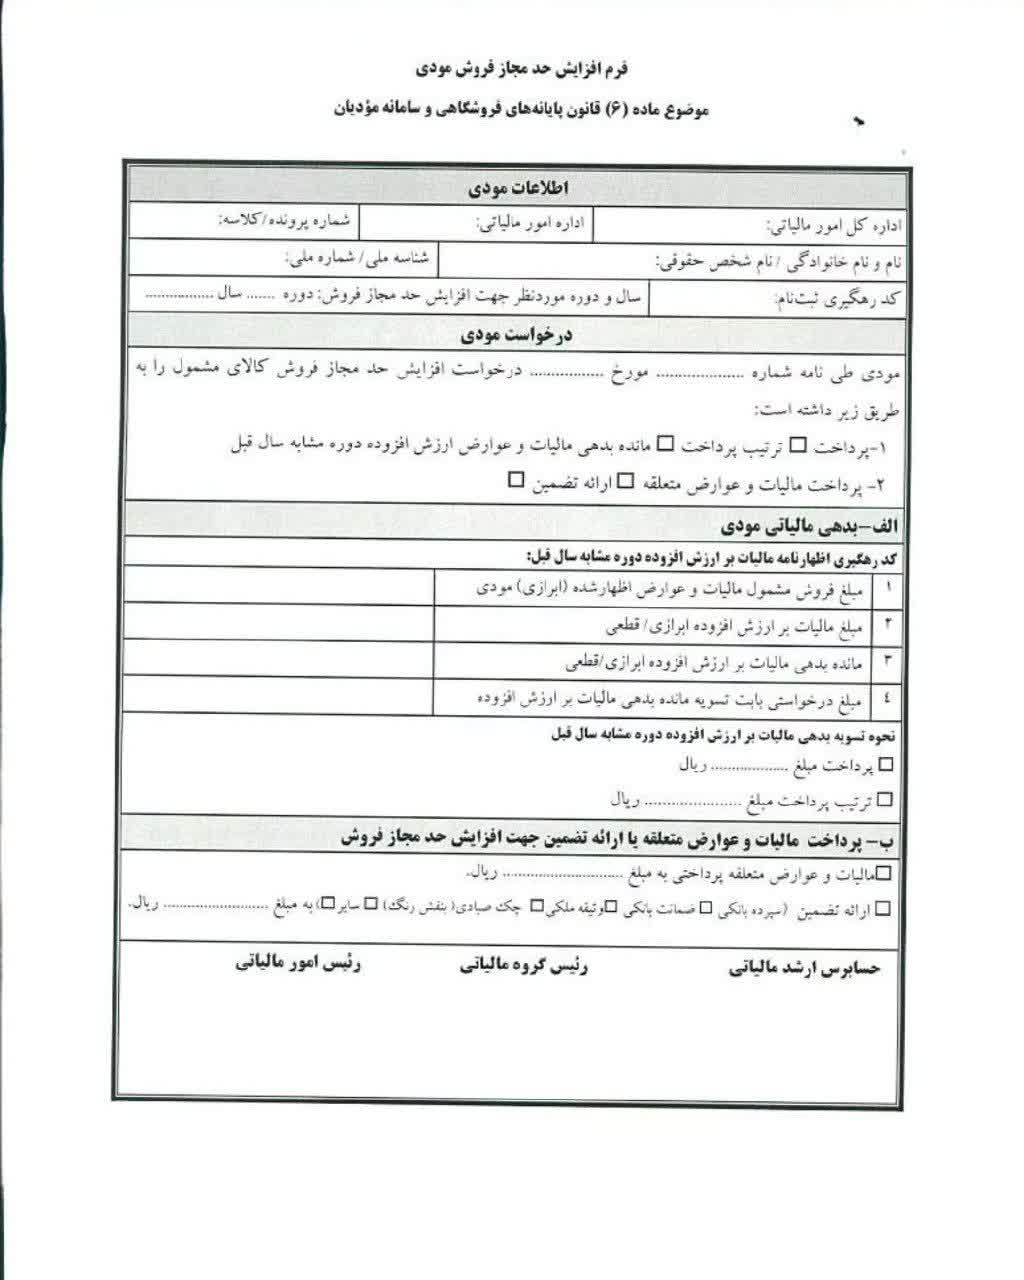 فرم افزایش حد مجاز فروش مودی
موضوع ماده (۶) قانون پایانه‌های فروشگاهی و سامانه مؤدیان
اطلاعات مودی
اداره کل امور مالیاتی: اداره امور مالیاتی: شماره پرونده/کلاسه:
نام و نام خانوادگی / نام شخص حقوقی: شناسه ملی/ شماره ملی:
کد رهگیری ثبت‌نام: سال و دوره موردنظر جهت افزایش حد مجاز فروش: دوره ....... سال .................
درخواست مودی
مودی طی نامه شماره .................... مورخ ................. درخواست افزایش حد مجاز فروش کالای مشمول را به
طریق زیر داشته است:
۱-پرداخت □ ترتیب پرداخت □ مانده بدهی مالیات و عوارض ارزش افزوده دوره مشابه سال قبل
۲- پرداخت مالیات و عوارض متعلقه □ ارائه تضمین □
الف-بدهی مالیاتی مودی
کد رهگیری اظهارنامه مالیات بر ارزش افزوده دوره مشابه سال قبل:
۱ مبلغ فروش مشمول مالیات و عوارض اظهارشده (ابرازی) مودی
۲ مبلغ مالیات بر ارزش افزوده ابرازی/ قطعی
۳ مانده بدهی مالیات بر ارزش افزوده ابرازی/قطعی
٤ مبلغ درخواستی بابت تسویه مانده بدهی مالیات بر ارزش افزوده
نحوه تسویه بدهی مالیات بر ارزش افزوده دوره مشابه سال قبل
□ پرداخت مبلغ .................. ریال
□ ترتیب پرداخت مبلغ ...................... ریال
ب- پرداخت مالیات و عوارض متعلقه یا ارائه تضمین جهت افزایش حد مجاز فروش
□مالیات و عوارض متعلقه پرداختی به مبلغ ............................ ریال.
□ ارائه تضمین (سپرده بانکی □ ضمانت بانکی □وثیقه ملکی□ چک صیادی( بنفش رنگ) □ سایر□)به مبلغ ......................... ریال.
حسابرس ارشد مالیاتی رئیس گروه مالیاتی رئیس امور مالیاتی